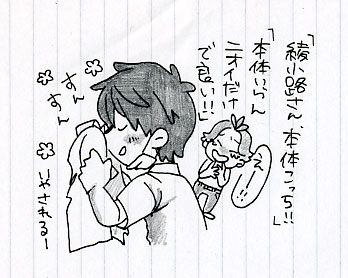 「綾小路さん、本体こっち!!」
「本体いらん
ニオイだけ
で良い!!」
すん
すん
いやされるー